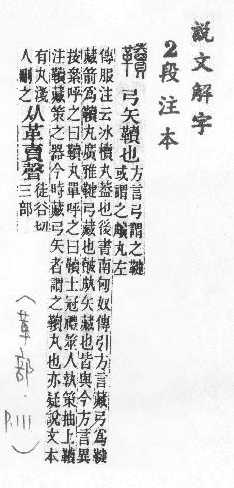 說文解字
2段注本
韇 弓矢韇也 方言弓謂之鞬
或謂之皾丸左
傳服注云冰櫝丸葢也後書南匈奴傳引方言藏弓爲鞬
藏箭爲韇丸廣雅鞬弓藏也皾矢藏也皆與今方言異
按絫呼之曰韇丸單呼之曰韇士冠禮筮人執筴抽上韇
注韇藏筴之器今時藏弓矢者謂之韇丸也亦疑說文本
有丸淺
人刪之 从革賣聲 徒谷切
三部
(革部. P.111)